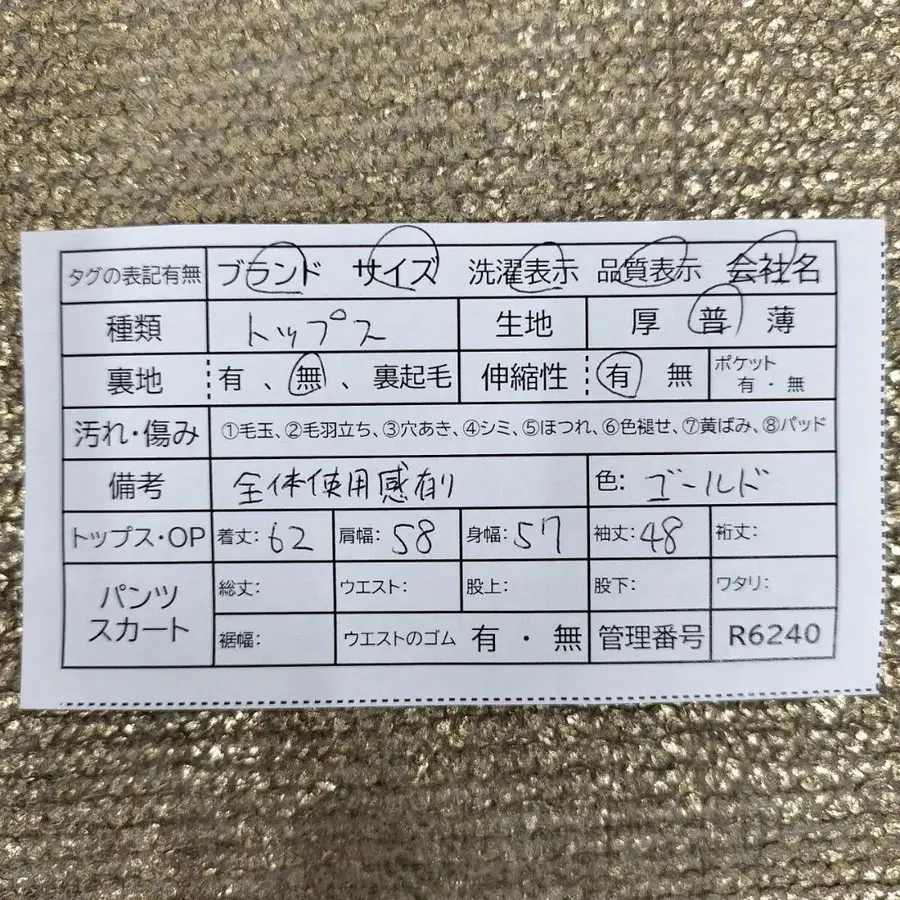 タグの表記有無 ブランド サイズ 洗濯表示 品質表示 会社名
種類 トップス 生地 厚 普 薄
裏地 有 、 無 、 裏起毛 伸縮性 有 無 ポケット 有 ・ 無
汚れ・傷み ①毛玉、②毛羽立ち、③穴あき、④シミ、⑤ほつれ、⑥色褪せ、⑦黄ばみ、⑧パッド
備考 全体使用感有り 色: ゴールド
トップス・OP 着丈: 62 肩幅: 58 身幅: 57 袖丈: 48 裄丈:
パンツ スカート 総丈: ウエスト: 股上: 股下: ワタリ:
裾幅: ウエストのゴム 有 ・ 無 管理番号 R6240